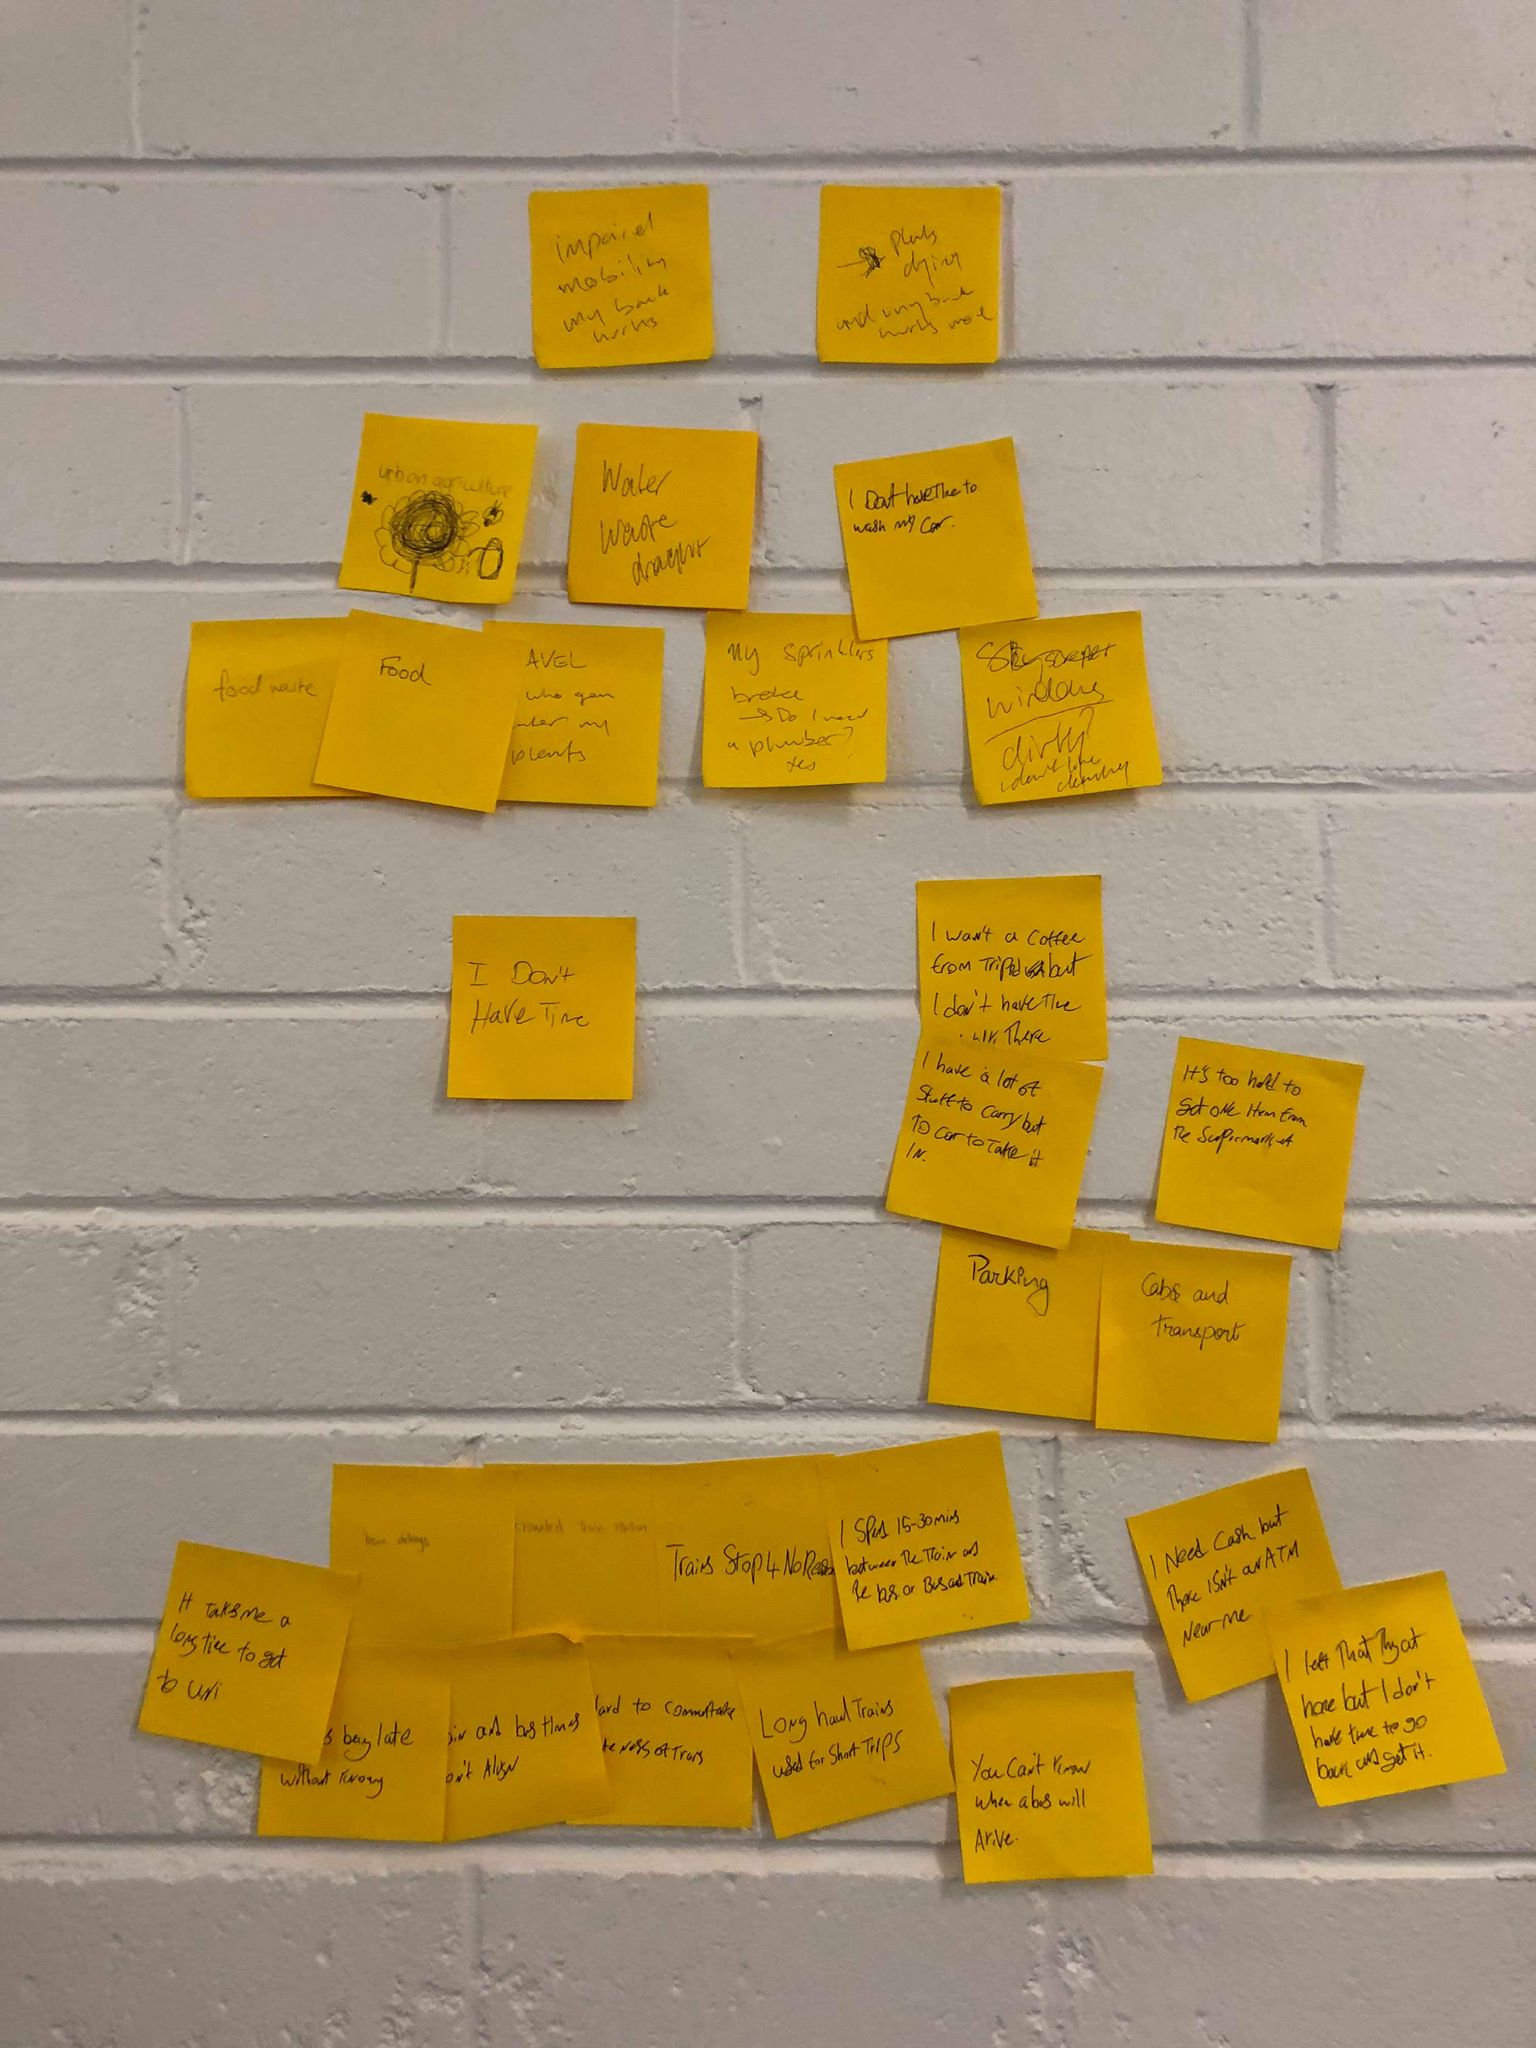 impaired
mobility
my back
hurts
plants
dying
and my back
hurts
urban agriculture
Water
Waste
I Dont have Time to
wash my Car.
food waste
Food
AVEL
who gon
my
plants
my sprinklers
broke
→ Do I need
a plumber?
yes
Skyscraper
windows
dirty?
I Don't
Have Time
I want a Coffee
from but
I don't have the
There
I have a lot of
Stuff to carry but
to Take it
IN.
It's too hard to
Get one Item from
the Supermarket
Parking
Cabs and
Transport
Train delays
crowded train station
Trains Stop 4 No Reas
I Spend 15-30 mins
between the Train and
the bus or Bus and Train.
It takes me a
long time to get
to uni
s being late
without knowing
in and bus times
on't Align
ard to
te ness of Trains
Long haul Trains
used for Short Trips
You Can't Know
when a bus will
Arive.
I Need Cash but
There ISn't an ATM
Near me
I left That Thing at
home but I don't
have time to go
back and get it.